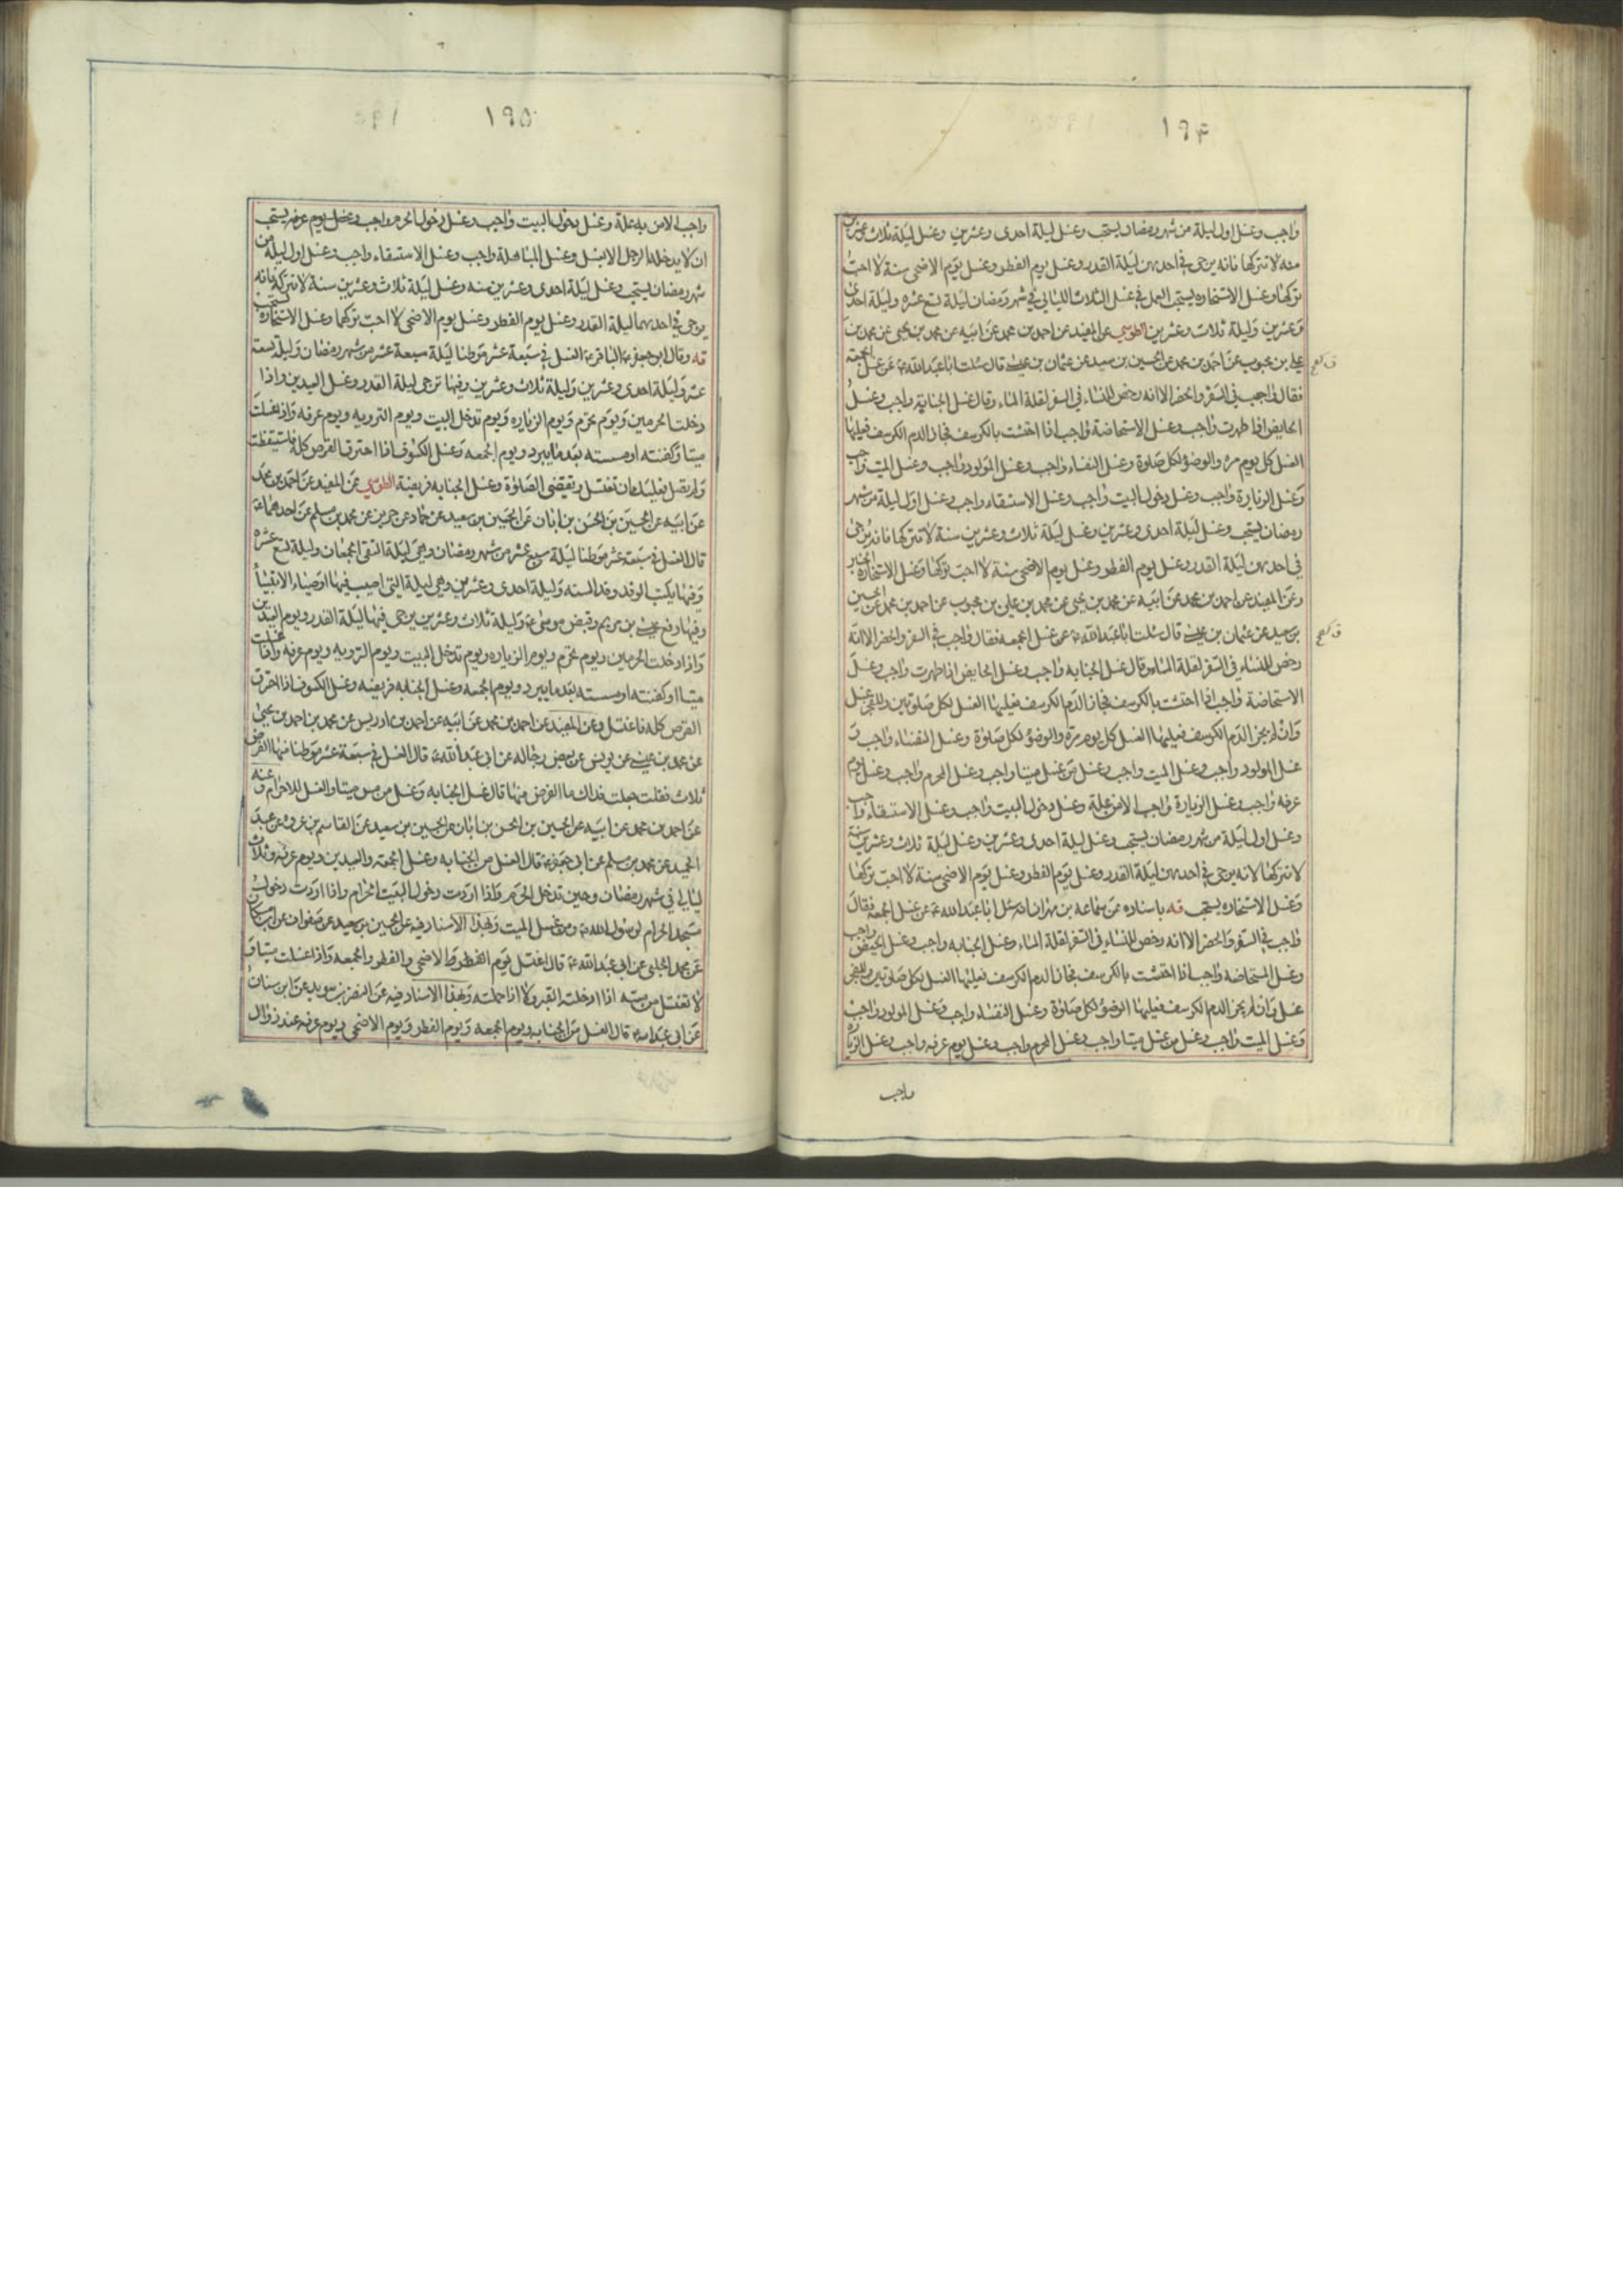 ۱۹۴
واجب وغسل اول ليلة من شهر رمضان يستحب وغسل ليلة احدى وعشرين وغسل ليلة ثلاث وعشرين
سنة لا تتركها فانه يرجى في احديهن ليلة القدر وغسل يوم الفطر وغسل يوم الاضحى سنة لا احب
تركها وغسل الاستخاره يستحب العمل في غسل الثلاث الليالي في شهر رمضان ليلة تسع عشره وليلة احدى
وعشرين وليلة ثلاث وعشرين الطوسي عن المفيد عن احمد بن محمد عن ابيه عن محمد بن يحيى عن محمد بن
علي بن محبوب عن احمد بن محمد عن الحسين بن سعيد عن عثمان بن عيسى قال سئلت ابا عبد الله ع عن غسل الجمعة
فقال واجب في السفر والحضر الا انه رخص للنساء في السفر لقلة الماء وقال غسل الجنابة واجب وغسل
الحايض اذا طهرت واجب وغسل الاستحاضة واجب اذا احتشت بالكرسف فجاز الدم الكرسف فعليها
الغسل كل يوم مره والوضوء لكل صلوة وغسل النفساء واجب وغسل المولود واجب وغسل الميت واجب
وغسل الزيارة واجب وغسل دخول البيت واجب وغسل الاستسقاء واجب وغسل اول ليلة من شهر
رمضان يستحب وغسل ليلة احدى وعشرين وغسل ليلة ثلاث وعشرين سنة لا تتركها فانه يرجى
في احديهن ليلة القدر وغسل يوم الفطر وغسل يوم الاضحى سنة لا احب تركها وغسل الاستخارة
وعن المفيد عن احمد بن محمد عن ابيه عن محمد بن يحيى عن محمد بن علي بن محبوب عن احمد بن محمد عن الحسين
بن سعيد عن عثمان بن عيسى قال سئلت ابا عبد الله ع عن غسل الجمعه فقال واجب في السفر والحضر الا انه
رخص للنساء في السفر لقلة الماء وقال غسل الجنابه واجب وغسل الحايض اذا طهرت واجب وغسل
الاستحاضة واجب اذا احتشت بالكرسف فجاز الدم الكرسف فعليها الغسل لكل صلوتين وللفجر غسل
وان لم يجز الدم الكرسف فعليها الغسل كل يوم مرة والوضوء لكل صلوة وغسل النفساء واجب و
غسل المولود واجب وغسل الميت واجب وغسل من غسل ميتا واجب وغسل المحرم واجب وغسل يوم
عرفه واجب وغسل الزيارة واجب الا من علة وغسل دخول البيت واجب وغسل الاستسقاء واجب
وغسل اول ليلة من شهر رمضان يستحب وغسل ليلة احدى وعشرين وغسل ليلة ثلاث وعشرين سنة
لا تتركها لانه يرجى في احديهن ليلة القدر وغسل يوم الفطر وغسل يوم الاضحى سنة لا احب تركها
وغسل الاستخاره يستحب قه باسناده عن سماعه بن مهران انه سئل ابا عبد الله ع عن غسل الجمعه فقال
واجب في السفر والحضر الا انه رخص للنساء في السفر لقلة الماء وغسل الجنابه واجب وغسل الحيض واجب
وغسل المستحاضة واجب اذا احتشت بالكرسف فجاز الدم الكرسف فعليها الغسل لكل صلوتين وللفجر
غسل وان لم يجز الدم الكرسف فعليها الوضوء لكل صلوة وغسل النفساء واجب وغسل المولود واجب
وغسل الميت واجب وغسل من غسل ميتا واجب وغسل المحرم واجب وغسل يوم عرفه واجب وغسل الزيارة
واجب
۱۹۵
واجب الا من به علة وغسل دخول البيت واجب وغسل دخول الحرم واجب وغسل يوم عرفه يستحب
ان لا يدخله الرجل الا بغسل وغسل المباهلة واجب وغسل الاستسقاء واجب وغسل اول ليلة من
شهر رمضان يستحب وغسل ليلة احدى وعشرين سنه وغسل ليلة ثلاث وعشرين سنة لا تتركه فانه
يرجى في احديهما ليلة القدر وغسل يوم الفطر وغسل يوم الاضحى لا احب تركهما وغسل الاستخاره يستحب
قه وقال ابو جعفر الباقر ع الغسل في سبعة عشر موطنا ليلة سبعة عشر من شهر رمضان وليلة تسعة
عشر وليلة احدى وعشرين وليلة ثلاث وعشرين وفيها ترجى ليلة القدر وغسل العيدين واذا
دخلت الحرمين ويوم تحرم ويوم الزياره ويوم تدخل البيت ويوم الترويه ويوم عرفه واذا غسلت
ميتا وكفنته او مسسته بعد ما يبرد ويوم الجمعه وغسل الكسوف اذا احترق القرص كله فاستيقظت
ولم تصل فعليك ان تغتسل وتقضي الصلوة وغسل الجنابه فريضة الطوسي عن المفيد عن احمد بن محمد
عن ابيه عن الحسين بن الحسن بن ابان عن الحسين بن سعيد عن حماد عن حريز عن محمد بن مسلم عن احدهما ع
قال الغسل في سبعة عشر موطنا ليلة سبع عشر من شهر رمضان وهي ليلة التقى الجمعان وليلة تسع عشره
وفيها يكتب الوفد وفد السنه وليلة احدى وعشرين وهي ليلة التي اصيب فيها اوصياء الانبياء
وفيها رفع عيسى بن مريم وقبض موسى ع وليلة ثلاث وعشرين يرجى فيها ليلة القدر ويوم العيدين
واذا دخلت الحرمين ويوم تحرم ويوم الزياره ويوم تدخل البيت ويوم الترويه ويوم عرفه واذا غسلت
ميتا او كفنته او مسسته بعد ما يبرد ويوم الجمعه وغسل الجنابه فريضه وغسل الكسوف اذا احترق
القرص كله فاغتسل وعن المفيد عن احمد بن محمد عن ابيه عن احمد بن ادريس عن محمد بن احمد بن يحيى
عن محمد بن عيسى عن يونس عن بعض رجاله عن ابي عبد الله ع قال الغسل في سبعة عشر موطنا منها الفرض
ثلاث فقلت جعلت فداك ما الفرض منها قال غسل الجنابه وغسل من مس ميتا والغسل للاحرام وعنه
عن احمد بن محمد عن ابيه عن الحسين بن الحسن بن ابان عن الحسين بن سعيد عن القاسم بن عروة عن عبد
الحميد عن محمد بن مسلم عن ابي جعفر ع قال الغسل من الجنابه وغسل الجمعه والعيدين ويوم عرفه وثلاث
ليالي في شهر رمضان وحين تدخل الحرم واذا اردت دخول البيت الحرام واذا اردت دخول
مسجد الحرام لرسول الله ص ومن غسل الميت وبهذا الاسناد فيه عن الحسين بن سعيد عن صفوان عن ابن مسكان
عن محمد الحلبي عن ابي عبد الله ع قال اغتسل يوم الفطر والاضحى والفطر والجمعه واذا غسلت ميتا و
لا تغتسل من مسه اذا ادخلته القبر ولا اذا حملته وبهذا الاسناد فيه عن النضر بن سويد عن ابن سنان
عن ابي عبد الله ع قال الغسل من الجنابه ويوم الجمعه ويوم الفطر ويوم الاضحى ويوم عرفه عند زوال